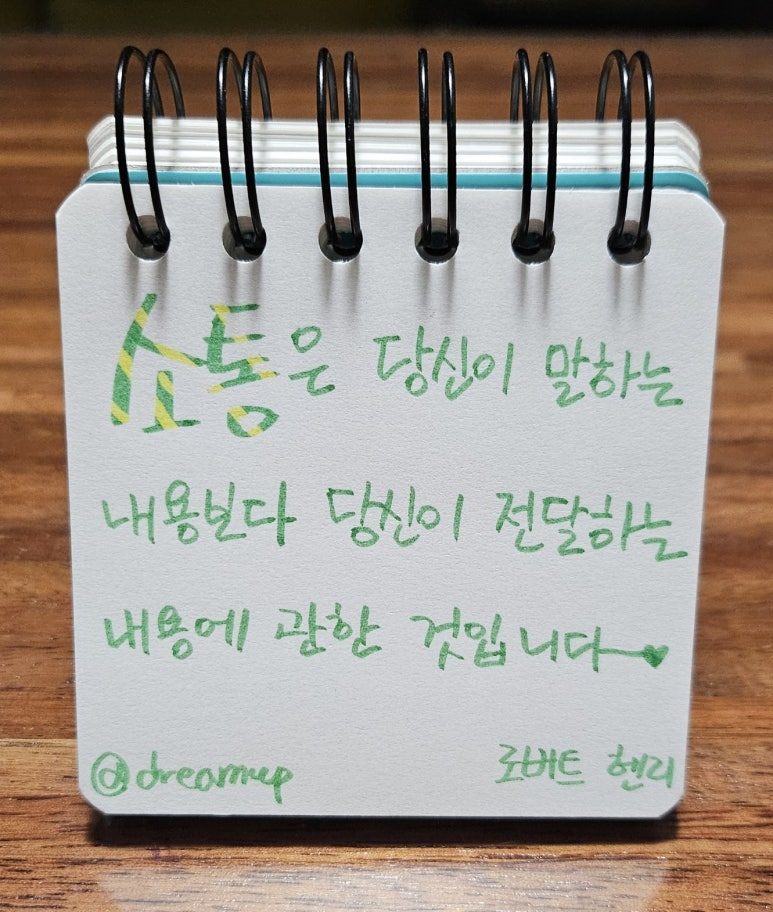 소통은 당신이 말하는
내용보다 당신이 전달하는
내용에 관한 것입니다
@dreamup 로버트 헨리